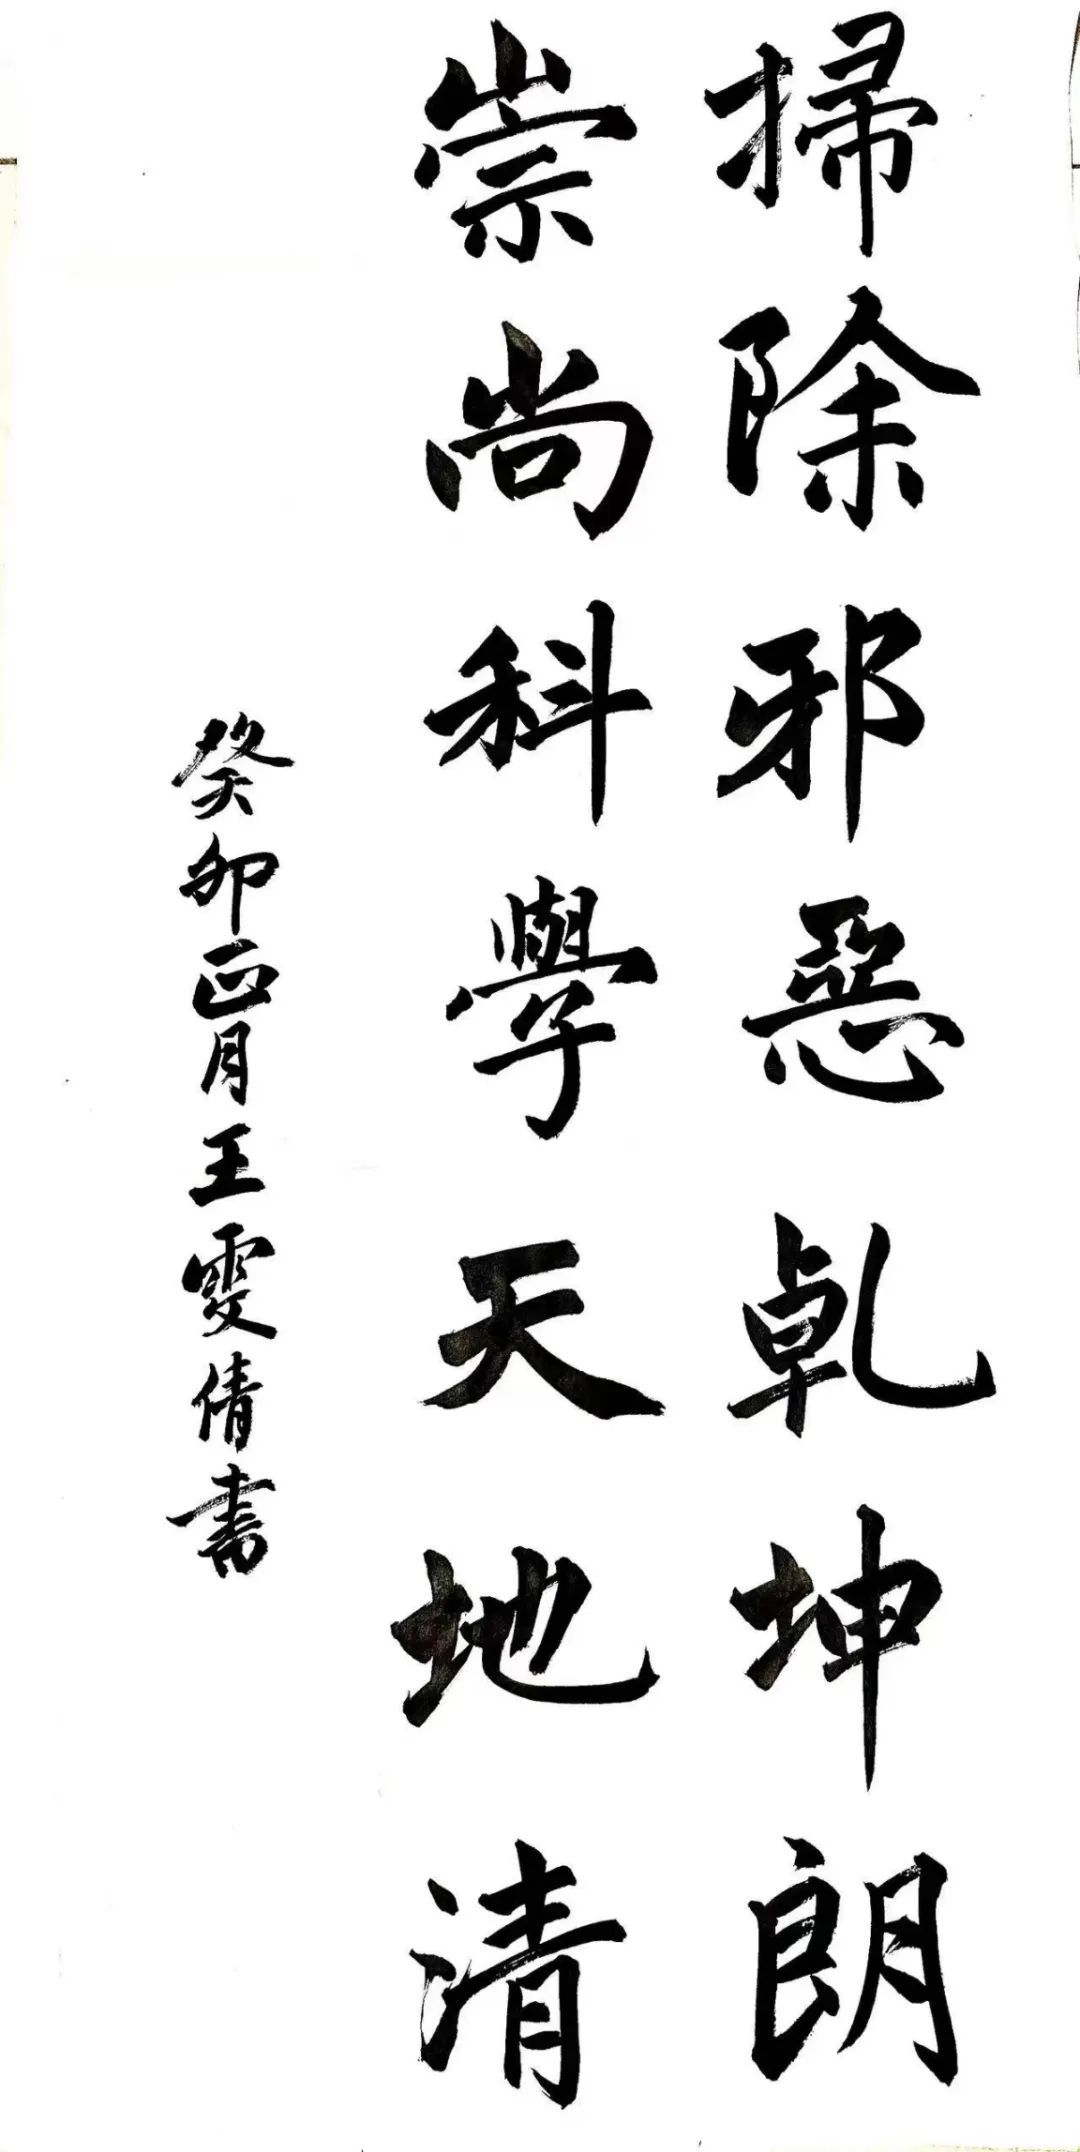 掃除邪惡乹坤朗
崇尚科學天地清
癸卯正月王雯倩書